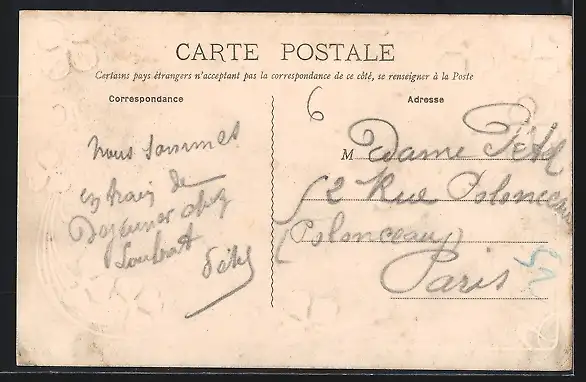 CARTE POSTALE
Certains pays étrangers n'acceptant pas la correspondance de ce côté, se renseigner à la Poste
Correspondance
Adresse
6
nous sommes
en train de
Dejeuner chez
M Madame
52 Rue Polonceau
(Polonceau)
Paris